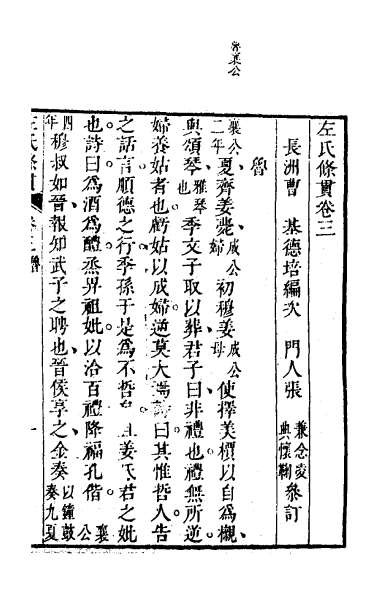 魯襄公
左氏條貫卷三
長洲曹　基德培編次　門人張　兼念　典懷　參訂
魯
襄公二年夏齊姜薨成公婦初穆姜成公母使擇美檟以自為櫬
與頌琴雅琴也季文子取以葬君子曰非禮也禮無所逆
婦養姑者也虧姑以成婦逆莫大焉詩曰其惟哲人告
之話言順德之行季孫于是為不哲矣且姜氏君之妣
也詩曰為酒為醴烝畀祖妣以洽百禮降福孔偕襄公
四年穆叔如晉報知武子之聘也晉侯享之金奏以鐘鼓奏九夏
左氏條貫　卷三　魯　一